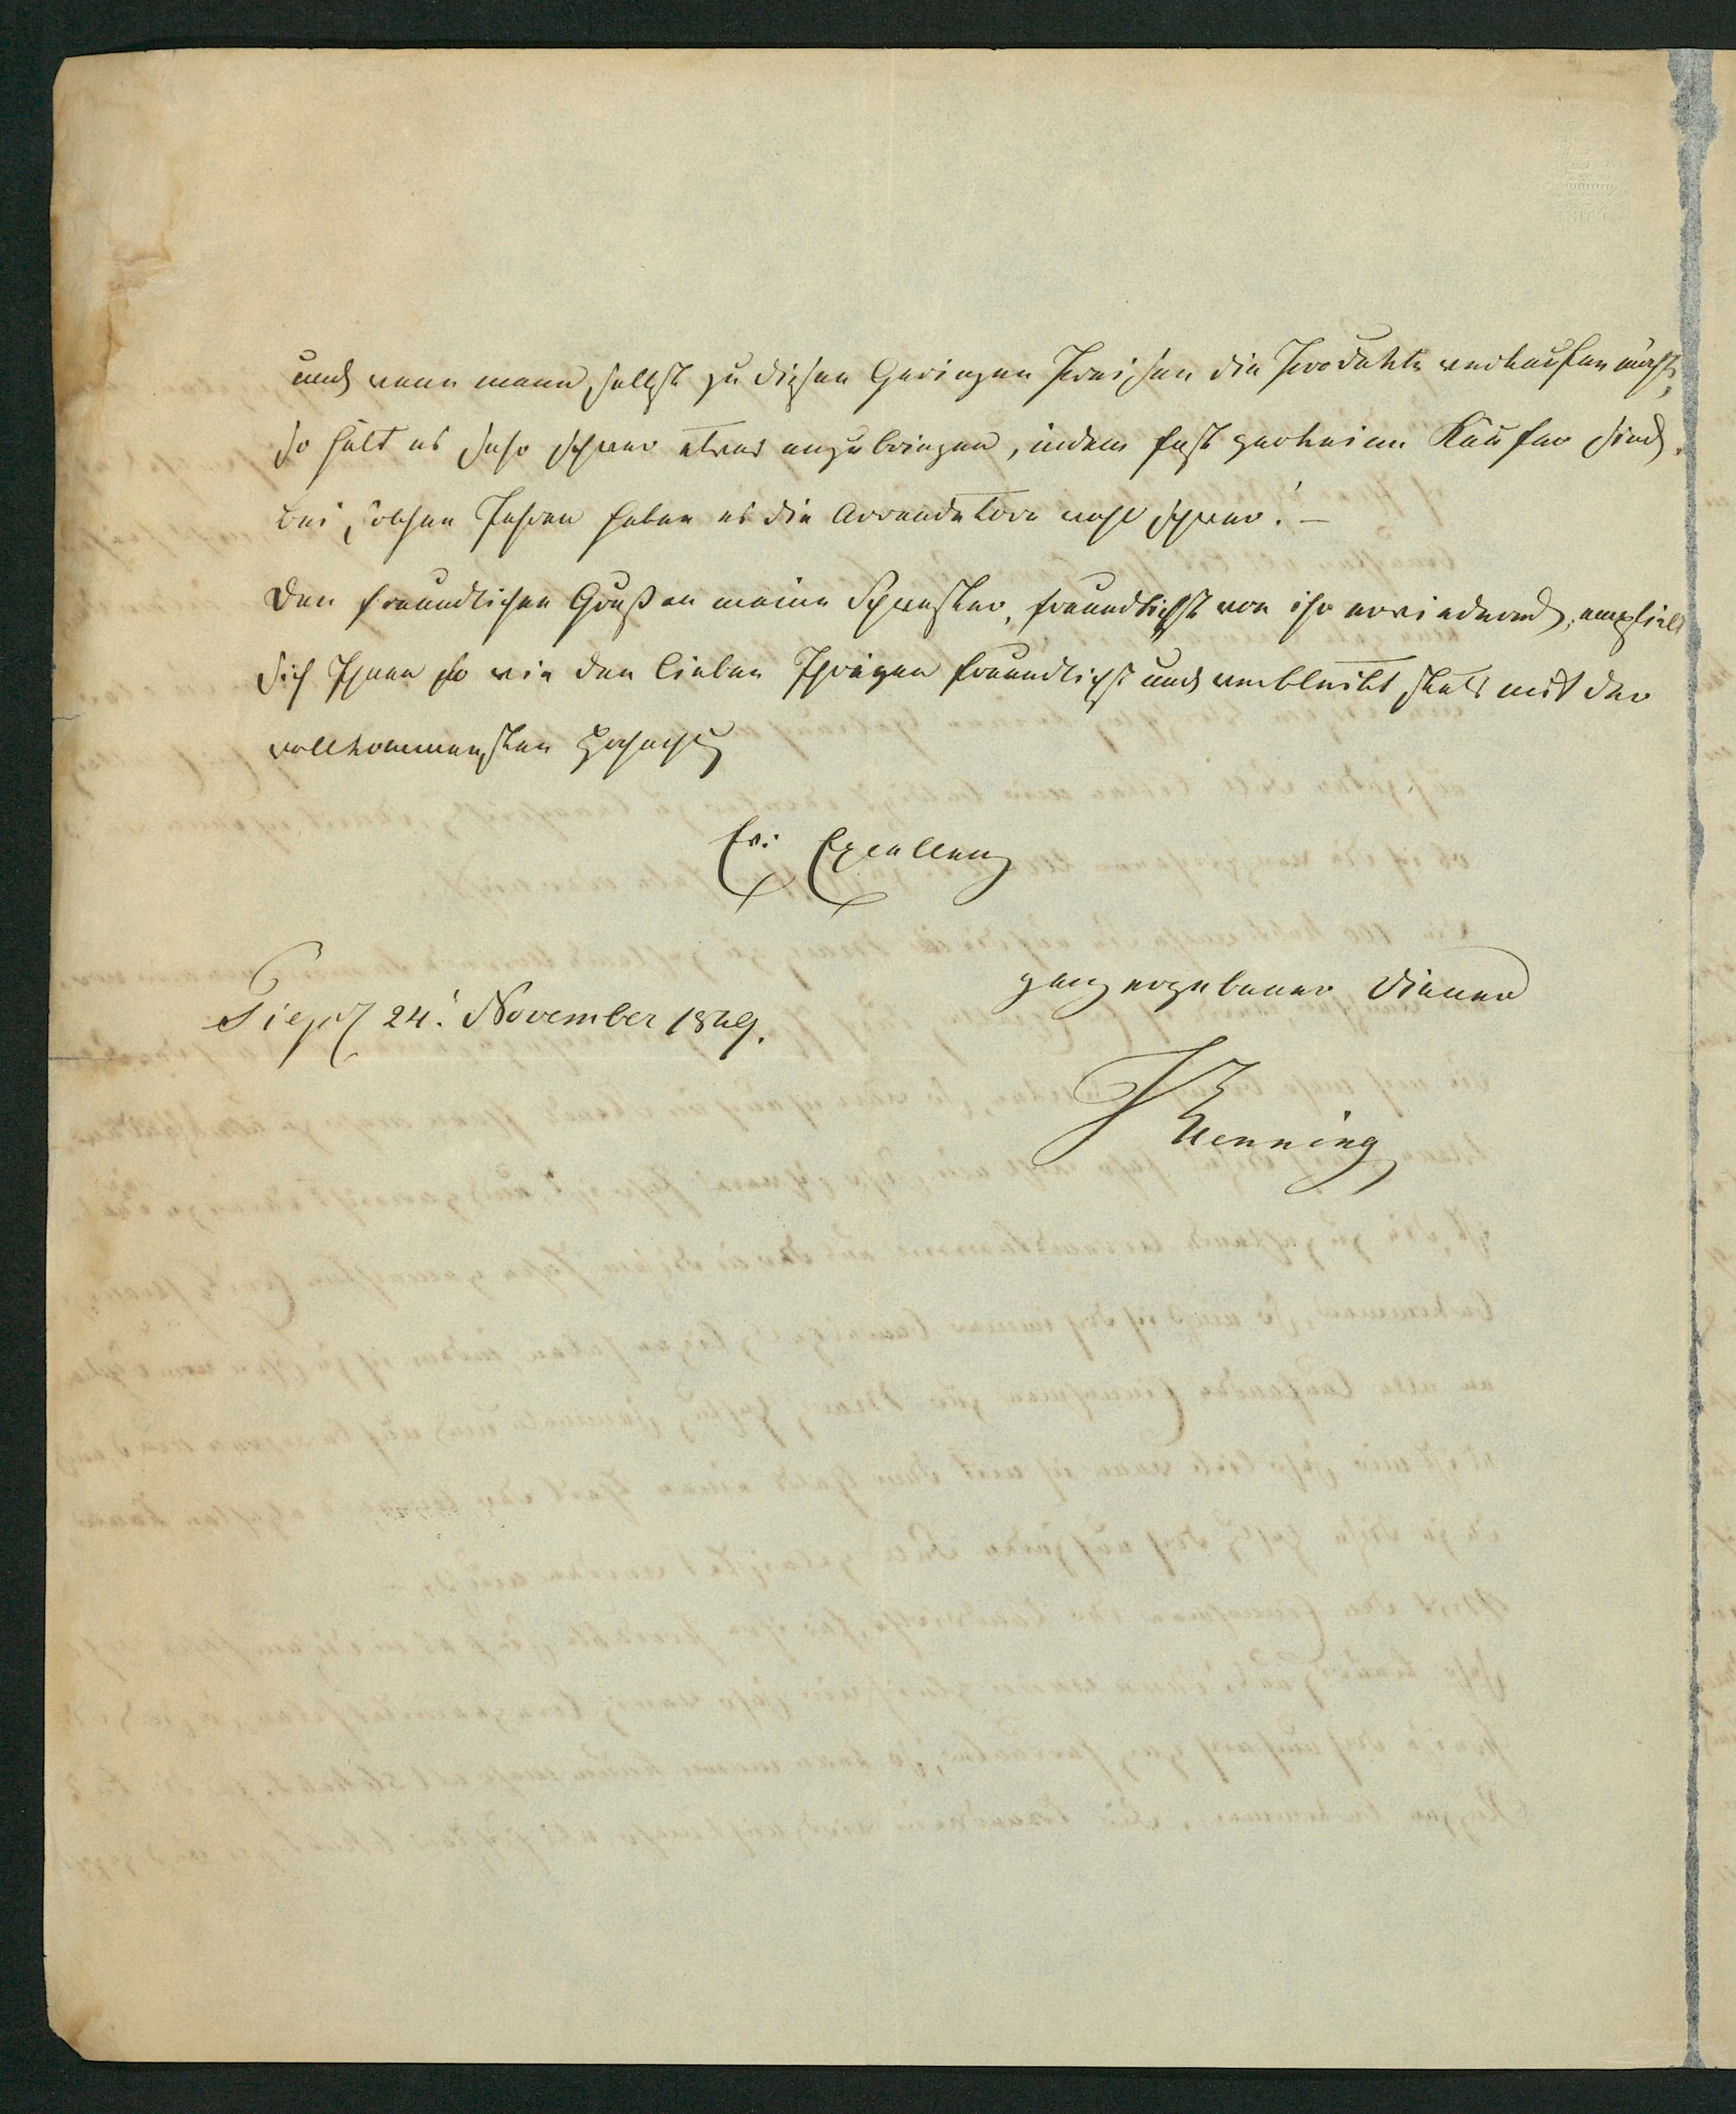 und wenn mann selbst zu diesen Geringen Preisen die Produkte verkaufen möchte,
so hält es sehr schwer etwas anzubringen, indem fast garkeine Käufer sind.
bei solchen Jahren haben es die Arrendatore wohl schwer! –
Den freundlichen Gruß an meine Schwester, freundlichst von ihr erwiedernd, empfielt
sich Ihnen so wie den lieben Ihrigen freundlichst und verbleibt stets mit der
vollkommensten Hochachtung
Ew. Excellenz
ganz ergebener Diener
24. November 1849.
Henning